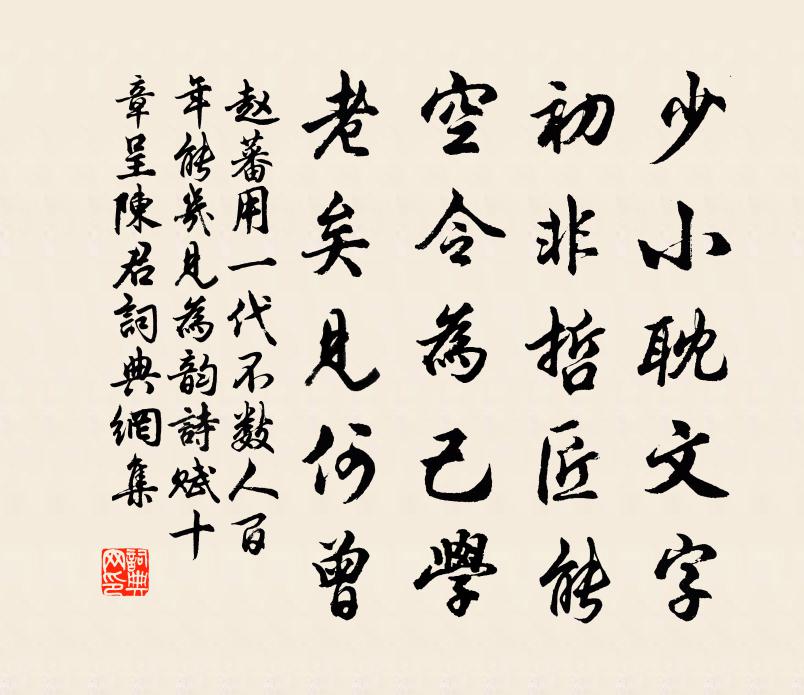 少小耽文字
初非哲匠能
空令為己學
老矣見何曾
赵蕃用一代不数人百
年能幾見為韵詩赋十
章呈陳君詞典網集
詞典网印